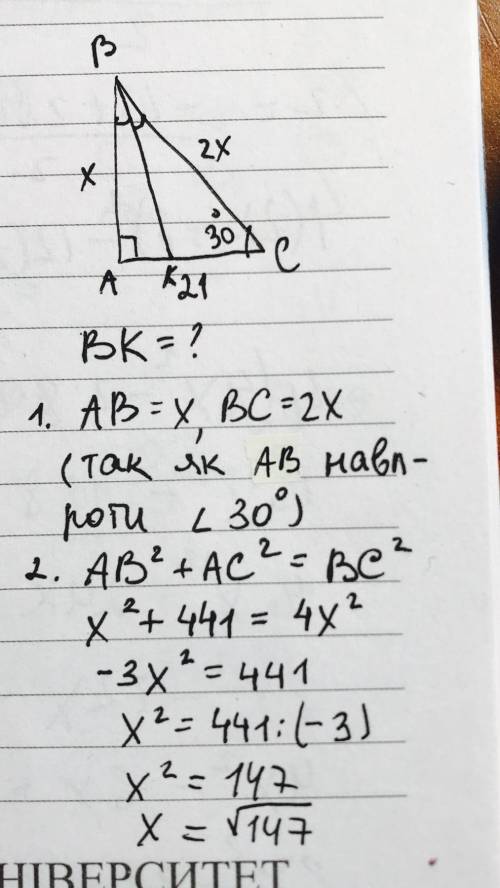 B
X
2X
30°
A
K
21
C
BK = ?
1. AB = X, BC = 2X
(так як AB навп-
роти ∠ 30°)
2. AB² + AC² = BC²
X² + 441 = 4X²
-3X² = 441
X² = 441 : (-3)
X² = 147
X = √147
НІВЕРСИТЕТ